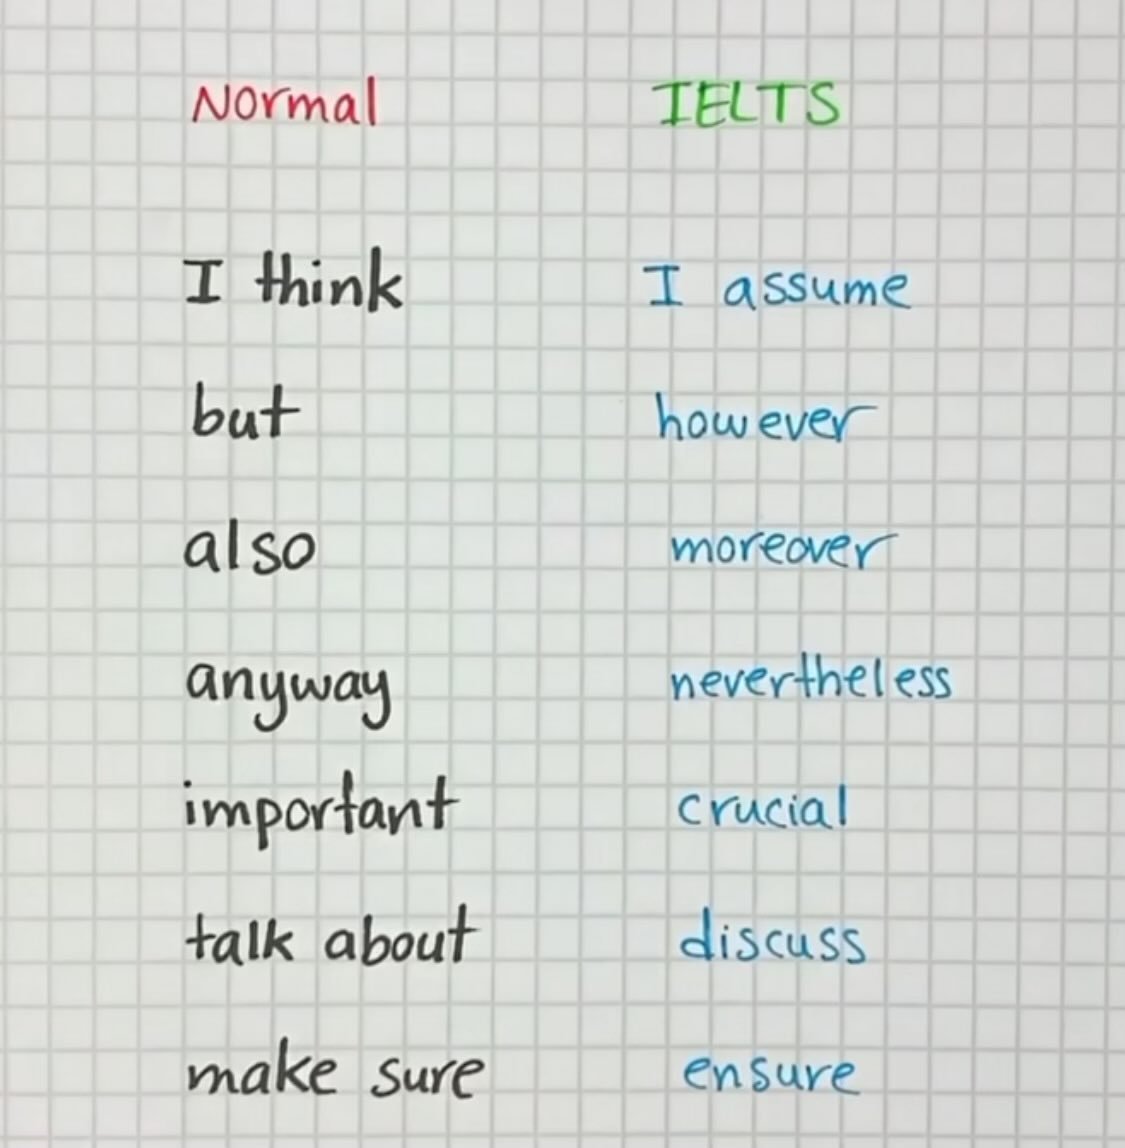 Normal IELTS
I think I assume
but however
also moreover
anyway nevertheless
important crucial
talk about discuss
make sure ensure